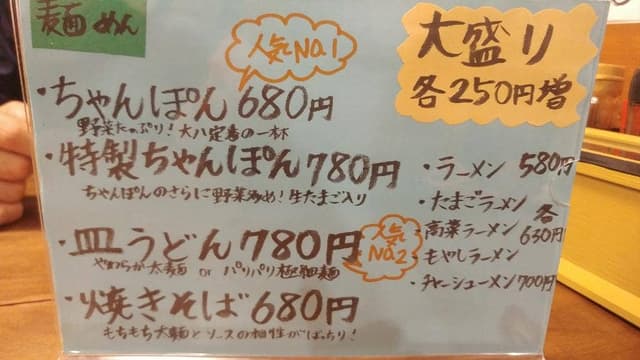 麺 めん
人気NO.1
大盛り
各250円増
・ちゃんぽん 680円
野菜たっぷり!大八定番の一杯
・特製ちゃんぽん 780円
ちゃんぽんのさらに野菜多め!生たまご入り
・皿うどん 780円
やわらか太麺 or パリパリ極細麺
人気NO.2
・焼きそば 680円
もちもち太麺とソースの相性がばっちり!
・ラーメン 580円
・たまごラーメン
高菜ラーメン
・もやしラーメン
各630円
・チャーシューメン 700円